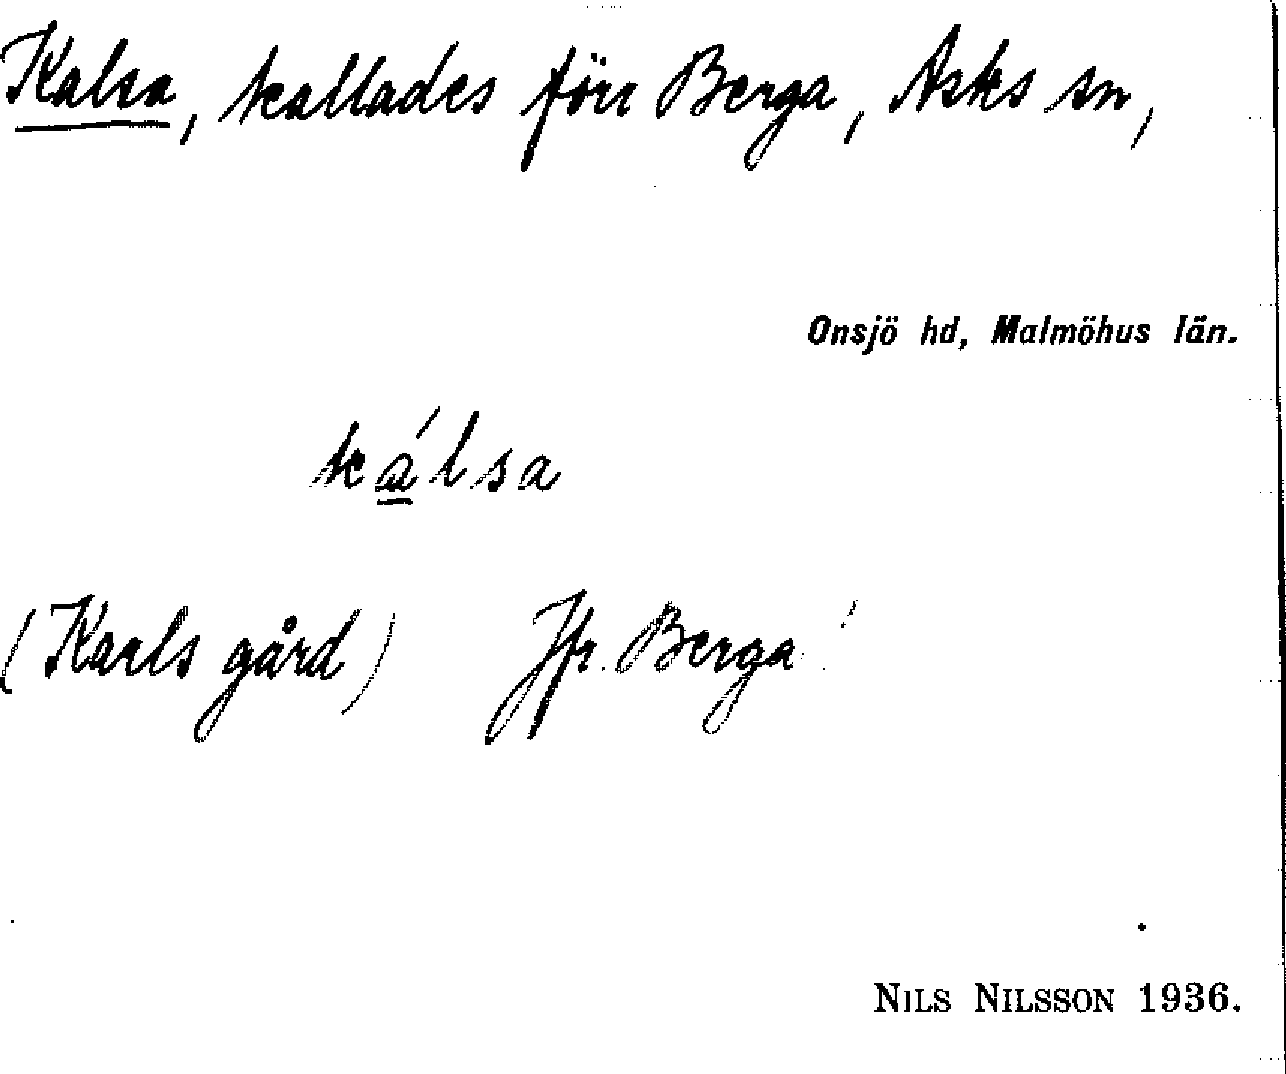 Kalsa, kallades förr Berga, Asks sn,
Onsjö hd, Malmöhus län.
ká̲lsa
(Karls gård) Jfr. Berga!
NILS NILSSON 1936.